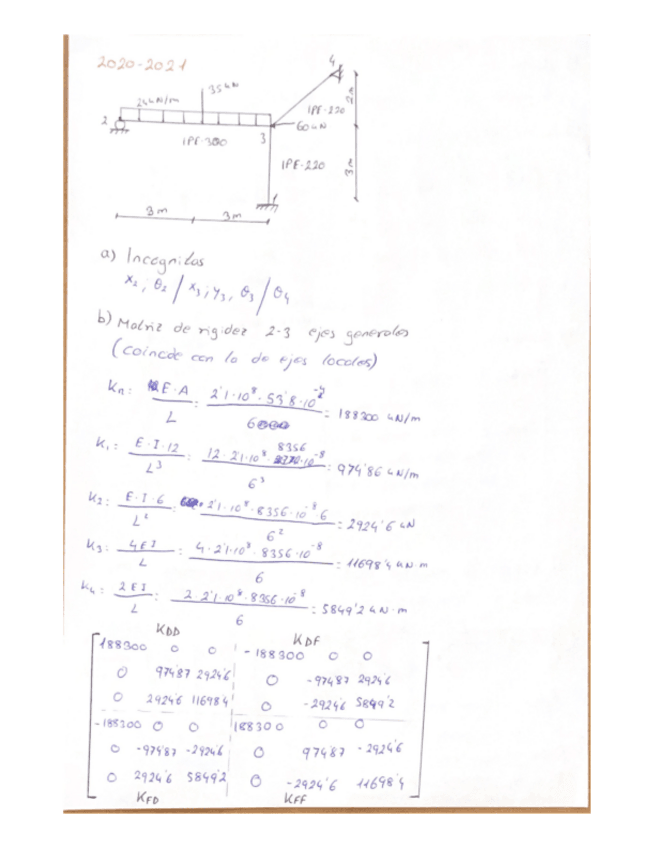 2020-2021
4
35 kN
24 kN/m
2m
IPE-220
2
60 kN
IPE-300
3
IPE-220
3m
1
3m
3m
a) Incognitas
x₂, θ₂ / x₃, y₃, θ₃ / θ₄
b) Matriz de rigidez 2-3 ejes generales
(coincide con la de ejes locales)
Kₙ: E·A / L = 2'1·10⁸·53'8·10⁻⁴ / 6 = 188300 kN/m
K₁: E·I·12 / L³ : 12·2'1·10⁸·8356·10⁻⁸ / 6³ : 974'86 kN/m
K₂: E·I·6 / L² : 2'1·10⁸·8356·10⁻⁸·6 / 6² : 2924'6 kN
K₃: 4EI / L : 4·2'1·10⁸·8356·10⁻⁸ / 6 : 11698'4 kN·m
K₄: 2EI / L : 2·2'1·10⁸·8356·10⁻⁸ / 6 : 5849'2 kN·m
KDD KDF
188300 0 0 -188300 0 0
0 974'87 2924'6 0 -974'87 2924'6
0 2924'6 11698'4 0 -2924'6 5849'2
-188300 0 0 188300 0 0
0 -974'87 -2924'6 0 974'87 -2924'6
0 2924'6 5849'2 0 -2924'6 11698'4
KFD KFF